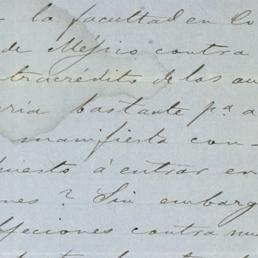 la facultad en lo
de Méjico contra
tracrédito de las au
ría bastante pa. a
manifiesta con-
uesto á entrar en
nes? Sin embarg
feciones contra nu